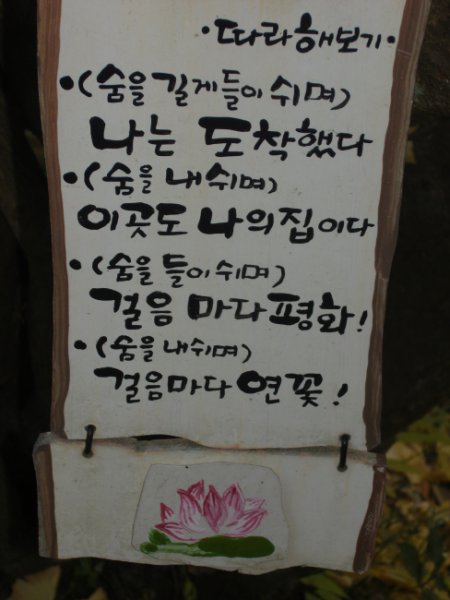 ·따라해보기·
·(숨을 길게들이쉬며)
나는 도착했다
·(숨을 내쉬며)
이곳도 나의집이다
·(숨을 들이쉬며)
걸음 마다 평화!
·(숨을 내쉬며)
걸음마다 연꽃!